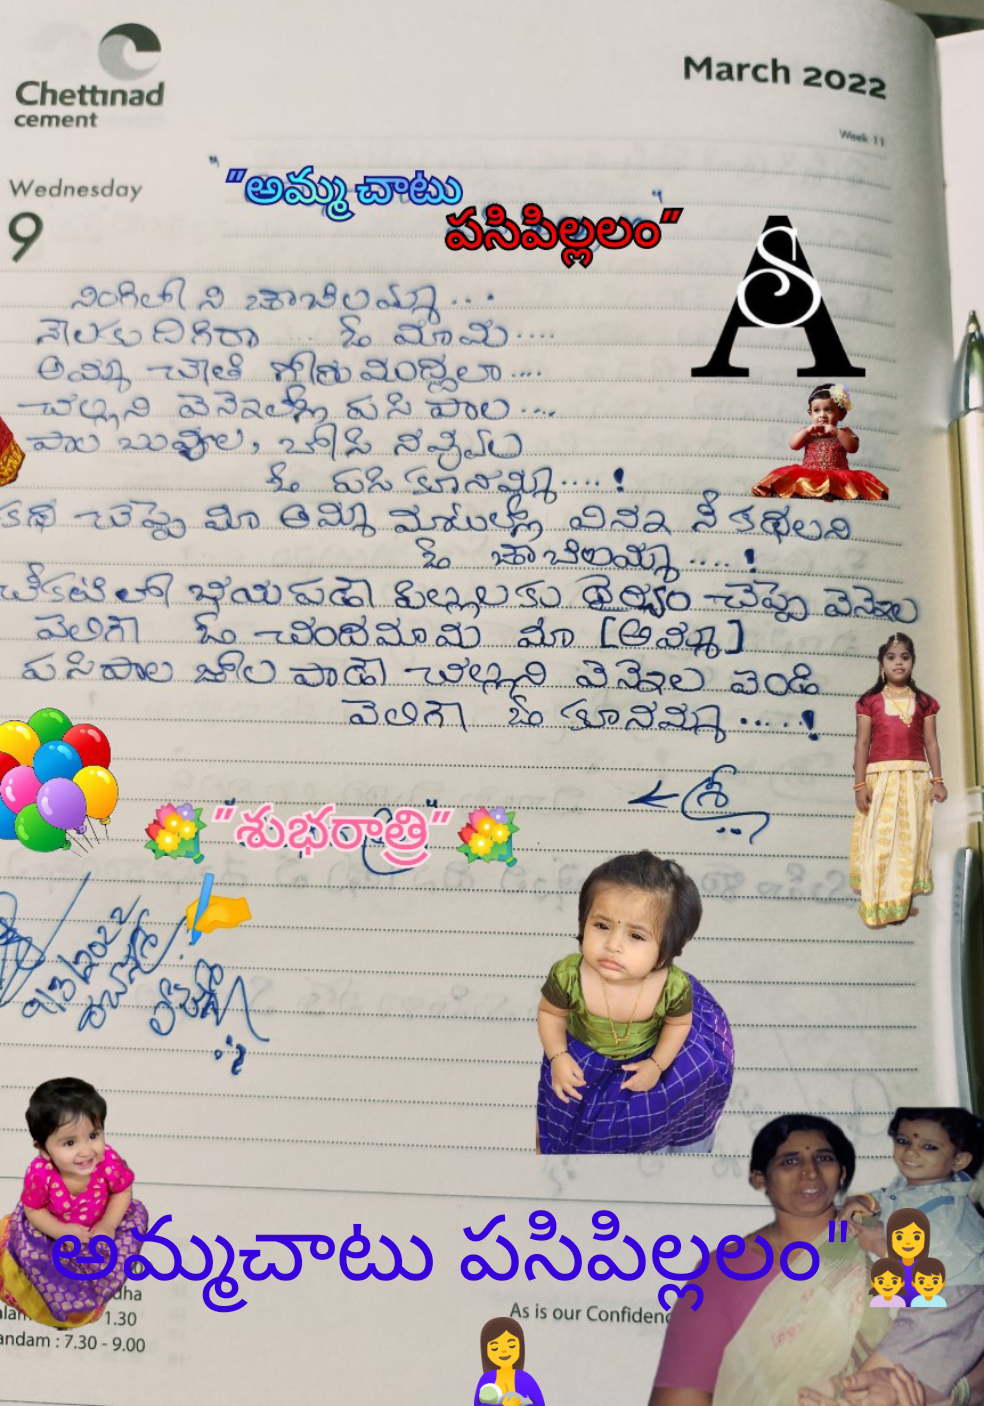 Chettinad
cement
March 2022
Week 11
Wednesday
9
"అమ్మచాటు
పసిపిల్లలం"
A
S
నింగిలోని జాబిలమ్మా...
నేలకు దిగిరా ఓ మామ....
అమ్మ చేతి గోరుముద్దలా....
చల్లని వెన్నెలల్లో పసి పాల....
పాల బువ్వల, బోసి నవ్వుల
ఓ పసి కూనమ్మ....!
కథ చెప్పే మా అమ్మ మాటల్లో విన్న నీ కథలని
ఓ జాబిలమ్మ....!
చీకటిలో భయపడే పిల్లలకు ధైర్యం చెప్పే వెన్నెల
వెలిగే ఓ చందమామ మా [అమ్మ]
పసిపాల జోల పాడే చల్లని వెన్నెల వెండి
వెలిగే ఓ కూనమ్మ.....!
శ్రీ
"శుభరాత్రి"
అమ్మచాటు పసిపిల్లలం"
dha
1.30
andam : 7.30 - 9.00
As is our Confidenc